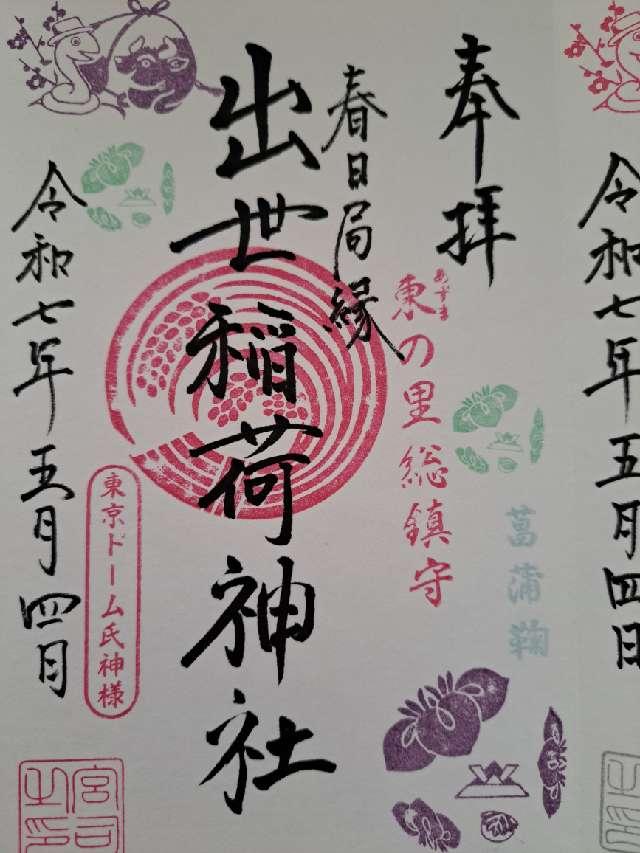 奉拝
あずま
東の里総鎮守
菖蒲鞠
春日局縁
出世稲荷神社
東京ドーム氏神様
令和七年五月四日
宮司之印
令和七年五月四日